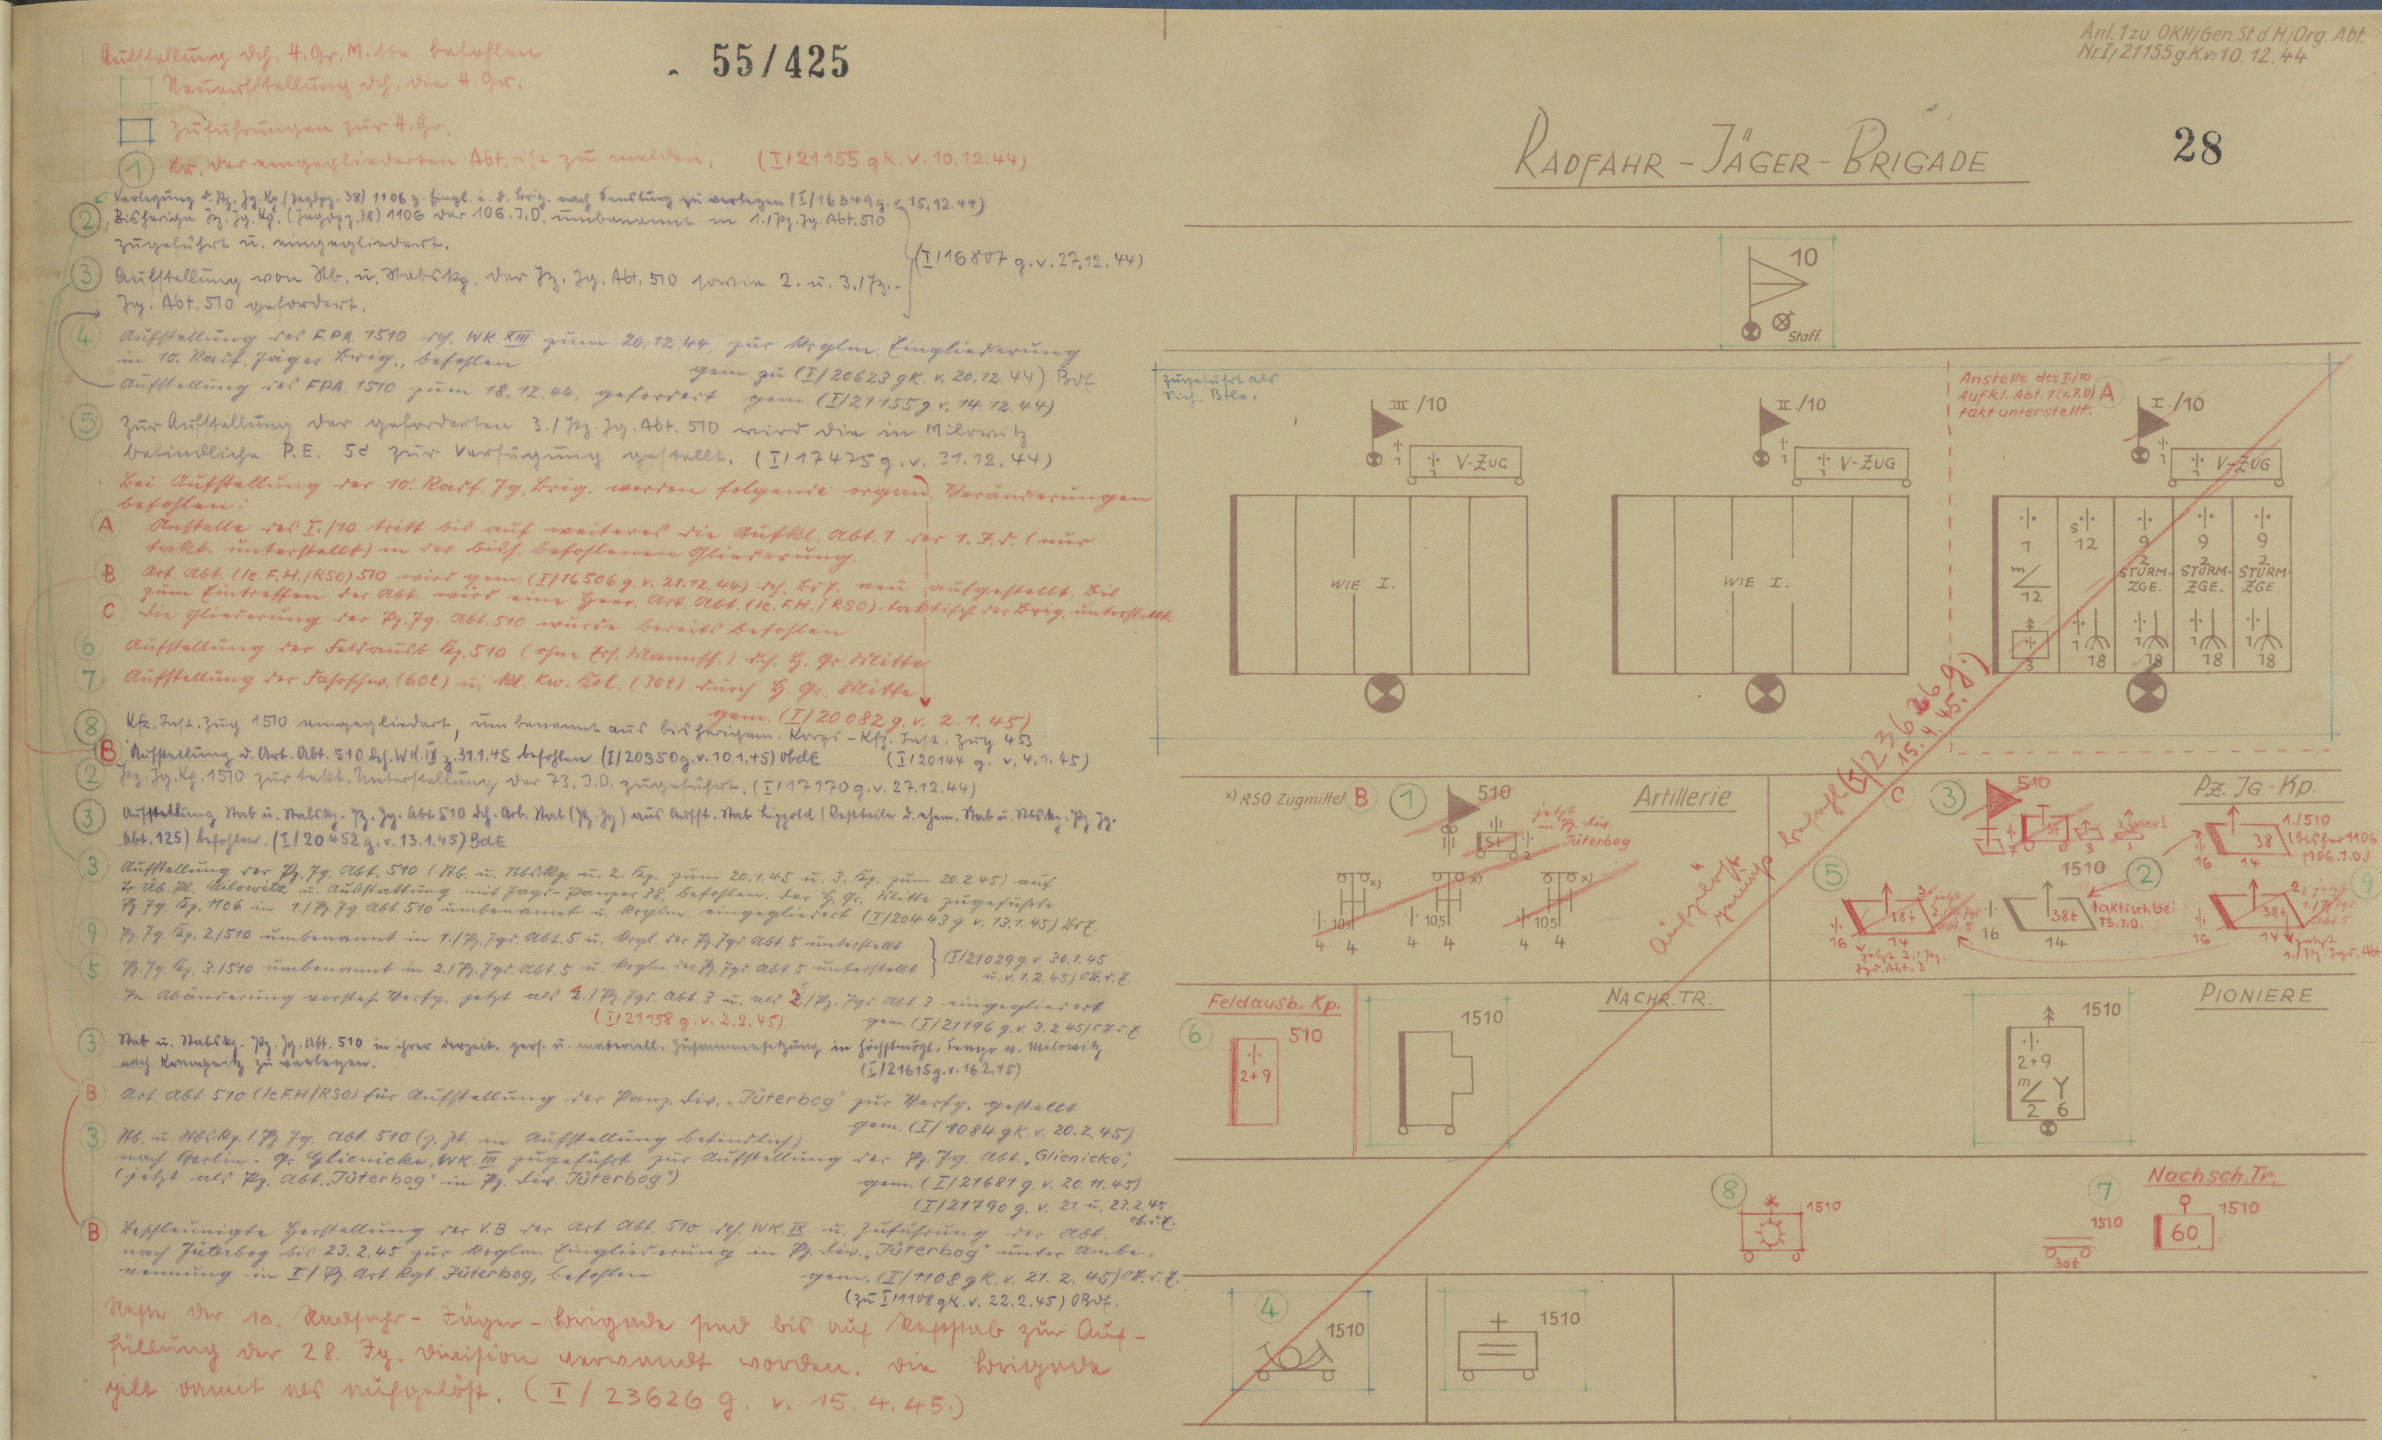 55/425
Aufstellung dch. H.Gr. Mitte befohlen
Neuaufstellung dch. die H.Gr.
Zuführungen zur H.Gr.
① Nr. der eingegliederten Abt. ist zu melden. (I/21155 gK. v. 10.12.44)
Verlegung d. Pz. Jg. Kp. (Jagdpz. 38) 1106 z. Eingl. i. d. Brig. nach zu verlegen (I/16349 g. v. 15.12.44)
② Bisherige Pz. Jg. Kp. (Jagdpz. 38) 1106 der 106. I.D. umbenannt in 1./Pz. Jg. Abt. 510
zugeführt u. eingegliedert.
(I/16807 g. v. 27.12.44)
③ Aufstellung von Stb. u. Stabskp. der Pz. Jg. Abt. 510 sowie 2. u. 3./Pz.-
Jg. Abt. 510 gefordert.
④ Aufstellung des FPA 1510 dch. WK XIII zum 20.12.44 zur Eingliederung
in 10. Radf. Jäger Brig., befohlen
gem. zu (I/20623 gK. v. 20.12.44) BdE
Aufstellung des FPA. 1510 zum 18.12.44, gefordert gem. (I/21155 g. v. 14.12.44)
⑤ Zur Aufstellung der geforderten 3./Pz. Jg. Abt. 510 wird die in Milowitz
befindliche P.E. 5d zur Verfügung gestellt. (I/17475 g. v. 31.12.44)
Bei Aufstellung der 10. Radf. Jg. Brig. werden folgende organ. Veränderungen
befohlen:
A Anstelle des I./10 tritt bis auf weiteres die Aufkl. Abt. 1 der 1. I.D. (nur
takt. unterstellt) in der bish. befohlenen Gliederung.
B Art. Abt. (le. F.H./RSO) 510 wird gem. (I/16506 g. v. 21.12.44) dch. BdE neu aufgestellt. Bis
zum Eintreffen der Abt. wird eine Heer. Art. Abt. (le. F.H./RSO) taktisch der Brig. unterstellt.
C Die Gliederung der Pz. Jg. Abt. 510 wurde bereits befohlen
6 Aufstellung der Feldausb. Kp. 510 (ohne Ers. Mannsch.) dch. H. Gr. Mitte
7 Aufstellung der Fahrschw. (60t) u. kl. Kw. Kol. (30t) durch H. Gr. Mitte
gem. (I/20082 g. v. 2.1.45)
⑧ Kfz. Inst. Zug 1510 eingegliedert, umbenannt aus bisherigem Korps-Kfz. Inst. Zug 453
(I/20144 g. v. 4.1.45)
B Aufstellung d. Art. Abt. 510 dch. WK. IX z. 31.1.45 befohlen (I/20350 g. v. 10.1.45) ObdE
② Pz. Jg. Kp. 1510 zur takt. Unterstellung der 73. I.D. zugeführt. (I/17170 g. v. 27.12.44)
③ Aufstellung Stab u. Stabskp. Pz. Jg. Abt 510 dch. Arb. Stab (Pz. Jg) aus Aufst. Stab Lippold (Restteile d. ehem. Stab u. Stbskp. Pz. Jg.
Abt. 125) befohlen. (I/20452 g. v. 13.1.45) BdE
③ Aufstellung der Pz. Jg. Abt. 510 (Stb. u. Stbskp. u. 2. Kp. zum 20.1.45 u. 3. Kp. zum 20.2.45) auf
Tr. Üb. Pl. Milowitz u. Ausstattung mit Jagd-Panzer 38, befohlen. Der H. Gr. Mitte zugeführte
Pz. Jg. Kp. 1106 in 1./Pz Jg Abt. 510 umbenannt u. eingegliedert (I/20443 g v. 13.1.45)
9 Pz. Jg. Kp. 2./510 umbenannt in 1./Pz. Jgd. Abt. 5 u. der Pz Jgd Abt 5 unterstellt
5 Pz. Jg. Kp. 3./510 umbenannt in 2./Pz. Jgd. Abt. 5 u. der Pz Jgd. Abt 5 unterstellt
(I/21029 g. v. 30.1.45
u. v. 1.2.45)
In Abänderung vorsteh. Verfg. jetzt als 1./Pz Jgd. Abt. 3 u. als 2./Pz. Jgd. Abt. 3 eingegliedert
(I/21158 g. v. 2.2.45)
gem. (I/21196 g. v. 3.2.45)
③ Stab u. Stabskp. Pz. Jg. Abt. 510 in ihrer derzeit. pers. u. materiell. Zusammensetzung in höchstmögl. Tempo v. Milowitz
nach Krampnitz zu verlegen.
(I/21615 g. v. 16.2.45)
B Art Abt 510 (le F.H/RSO) für Aufstellung der Panz. Div. „Jüterbog" zur Verfg. gestellt
gem. (I/1084 gK. v. 20.2.45)
③ Stb. u. Stbskp./Pz Jg. Abt. 510 (z. Zt. in Aufstellung befindlich)
nach Berlin-Gr Glienicke, WK. III zugeführt zur Aufstellung der Pz. Jg. Abt. „Glienicke",
(jetzt als Pz. Abt. „Jüterbog" in Pz. Div. Jüterbog")
gem. (I/21681 g. v. 20.11.45)
(I/21790 g. v. 21 u. 23.2.45
B Beschleunigte Herstellung der V.B der Art Abt. 510 dch. WK. IX u. Zuführung der Abt.
nach Jüterbog bis 23.2.45 zur Eingliederung in Pz. Div. „Jüterbog" unter Umbe-
nennung in I/Pz. Art Rgt. Jüterbog, befohlen
gem. (I/1108 gK. v. 21.2.45)
(zu I/1108 gK. v. 22.2.45) OBdE.
Reste der 10. Radfahr-Jäger-Brigade sind bis auf Reststab zur Auf-
füllung der 28. Jg. Division verwandt worden. Die Brigade
gilt damit als aufgelöst. (I/23626 g. v. 15.4.45.)
Anl. 1 zu OKH/Gen St d. H./Org. Abt.
Nr. I/21155 g.K. v. 10.12.44
RADFAHR-JÄGER-BRIGADE
28
10
Staff.
zugeführt als
Btle.
III./10
1
1 V-ZUG
WIE I.
II./10
1
1 V-ZUG
WIE I.
Anstelle des I./10
Aufkl. Abt. 1 (1. I.D)
takt unterstellt. A
I./10
1
1 V-ZUG
1 12 9 9 9
m 12
s
2 STURM-ZGE.
2 STURM-ZGE.
2 STURM-ZGE.
3
1 18 1 18 1 18 1 18
Aufgelöst
(I/23626 g.)
15.4.45.
x) RSO Zugmittel B ① 510
Artillerie
St 2
jetzt
in Pz. Div.
Jüterbog
x) x) x)
105 105 105
4 4 4 4 4 4
C ③ 510
Pz. JG.-Kp.
St 3
1./510
(bisher 1106
(106. I.D.)
38
16 14
⑤ 38t
16 14
jetzt 2./Pz.
Jgd. Abt. 3
1510 ②
38t
16 14
taktisch bei
73. I.D.
⑨ 38t
16 14
jetzt
1./Pz. Jgd. Abt
Feldausb. Kp.
6 510
2+9
NACHR. TR.
1510
PIONIERE
1510
2+9
m 2 6
⑧ 1510
7 Nachsch. Tr.
1510
30t
1510
60
④ 1510
1510